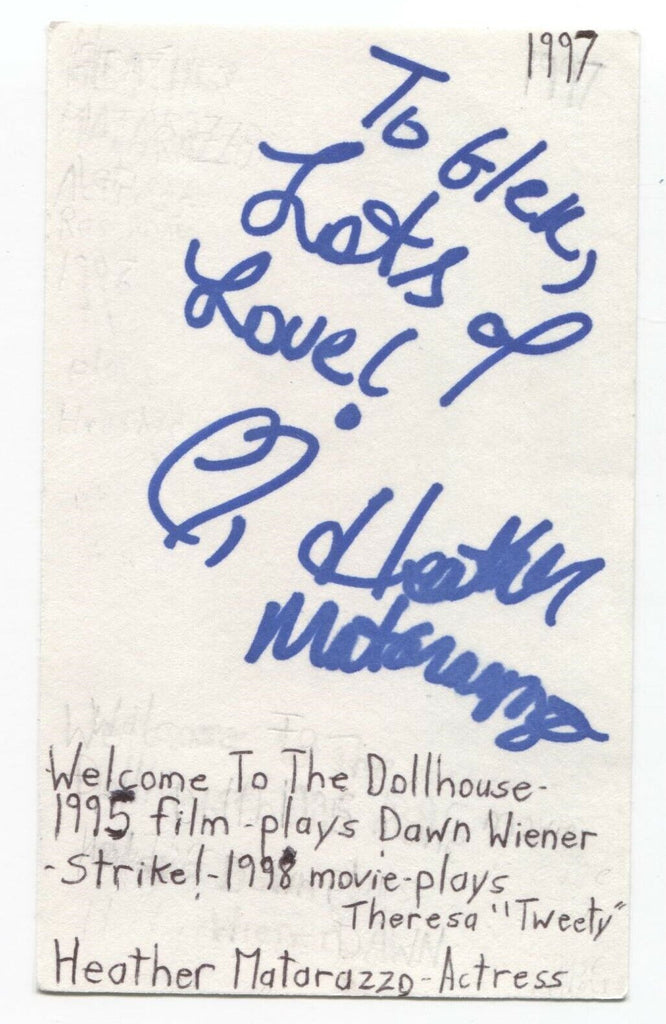 1997
To Glen,
Lots of
Love!
Heather
Matarazzo
Welcome To The Dollhouse-
1995 film-plays Dawn Wiener
-Strike!-1998 movie-plays
Theresa "Tweety"
Heather Matarazzo-Actress